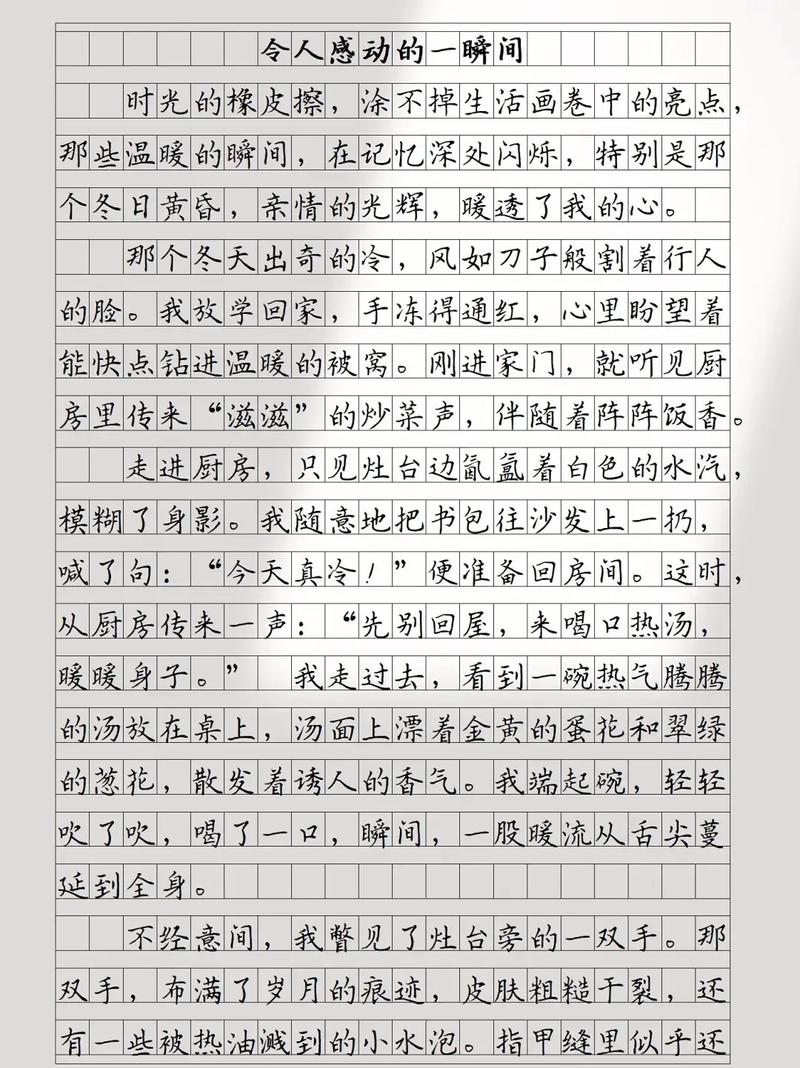 令人感动的一瞬间
时光的橡皮擦，涂不掉生活画卷中的亮点，
那些温暖的瞬间，在记忆深处闪烁，特别是那
个冬日黄昏，亲情的光辉，暖透了我的心。
那个冬天出奇的冷，风如刀子般割着行人
的脸。我放学回家，手冻得通红，心里盼望着
能快点钻进温暖的被窝。刚进家门，就听见厨
房里传来“滋滋”的炒菜声，伴随着阵阵饭香。
走进厨房，只见灶台边氤氲着白色的水汽，
模糊了身影。我随意地把书包往沙发上一扔，
喊了句：“今天真冷！”便准备回房间。这时，
从厨房传来一声：“先别回屋，来喝口热汤，
暖暖身子。” 我走过去，看到一碗热气腾腾
的汤放在桌上，汤面上漂着金黄的蛋花和翠绿
的葱花，散发着诱人的香气。我端起碗，轻轻
吹了吹，喝了一口，瞬间，一股暖流从舌尖蔓
延到全身。
不经意间，我瞥见了灶台旁的一双手。那
双手，布满了岁月的痕迹，皮肤粗糙干裂，还
有一些被热油溅到的小水泡。指甲缝里似乎还